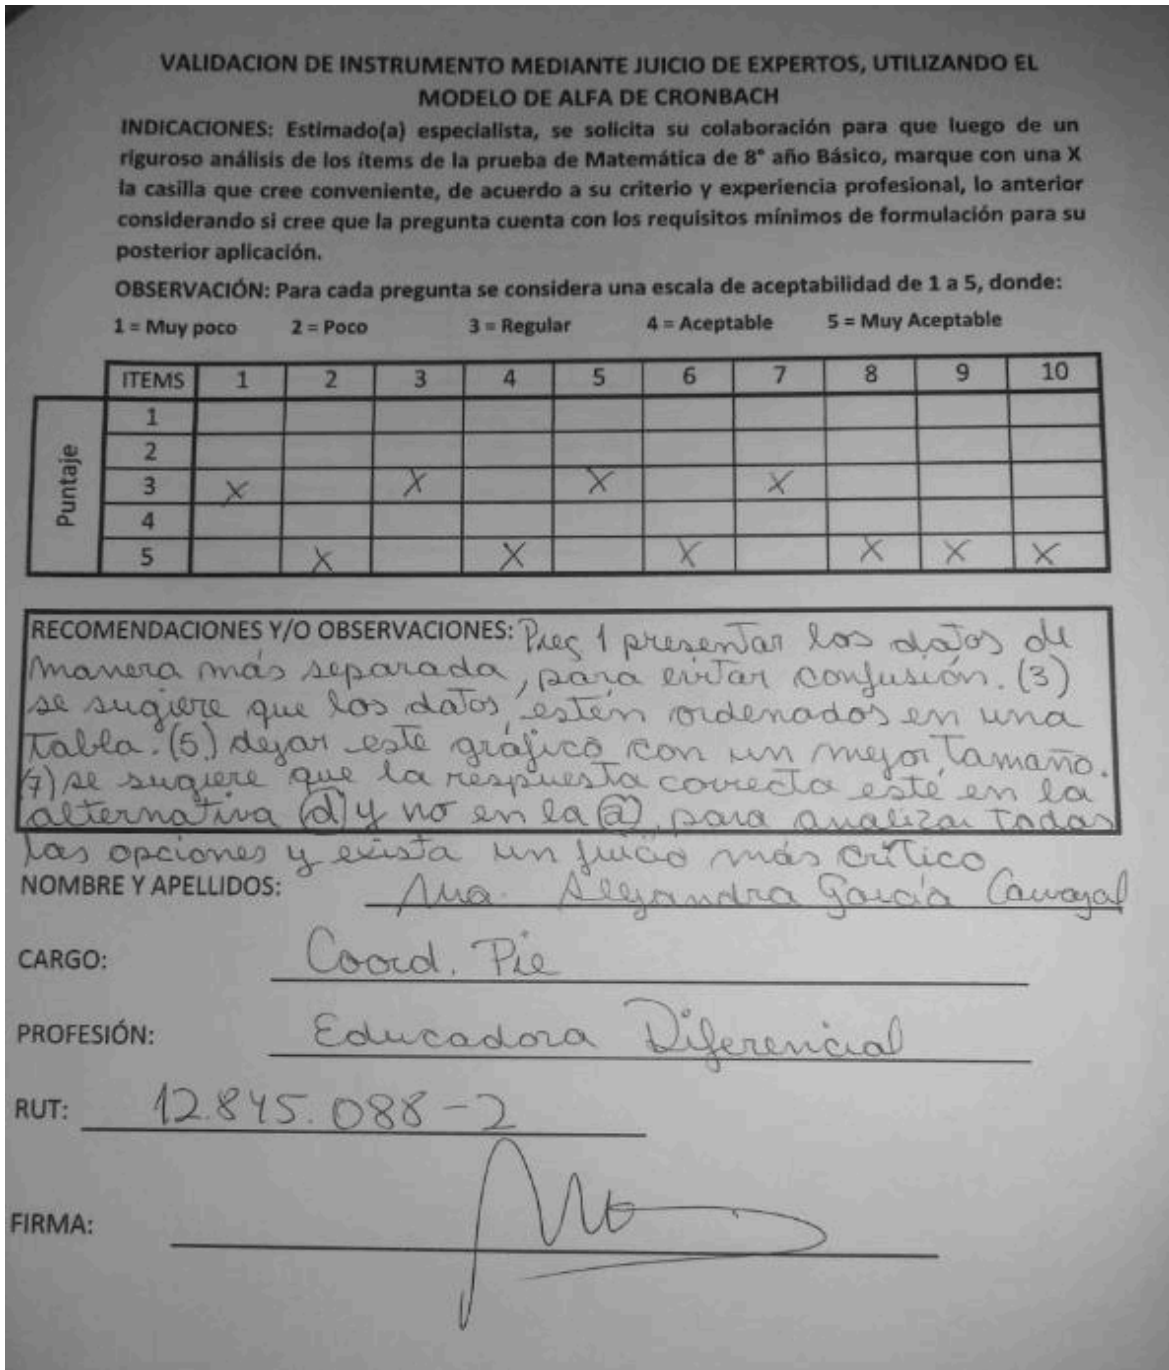 VALIDACION DE INSTRUMENTO MEDIANTE JUICIO DE EXPERTOS, UTILIZANDO EL
MODELO DE ALFA DE CRONBACH
INDICACIONES: Estimado(a) especialista, se solicita su colaboración para que luego de un
riguroso análisis de los ítems de la prueba de Matemática de 8° año Básico, marque con una X
la casilla que cree conveniente, de acuerdo a su criterio y experiencia profesional, lo anterior
considerando si cree que la pregunta cuenta con los requisitos mínimos de formulación para su
posterior aplicación.
OBSERVACIÓN: Para cada pregunta se considera una escala de aceptabilidad de 1 a 5, donde:
1 = Muy poco 2 = Poco 3 = Regular 4 = Aceptable 5 = Muy Aceptable
ITEMS 1 2 3 4 5 6 7 8 9 10
Puntaje
1
2
3 X X X X
4
5 X X X X X X
RECOMENDACIONES Y/O OBSERVACIONES: Preg 1 presentar los datos de
manera más separada, para evitar confusión. (3)
se sugiere que los datos estén ordenados en una
tabla. (5) dejar este gráfico con un mejor tamaño.
(7) se sugiere que la respuesta correcta esté en la
alternativa (d) y no en la (a), para analizar todas
las opciones y exista un juicio más crítico
NOMBRE Y APELLIDOS: Ma. Alejandra García Carvajal
CARGO: Coord. Pie
PROFESIÓN: Educadora Diferencial
RUT: 12.845.088-2
FIRMA: